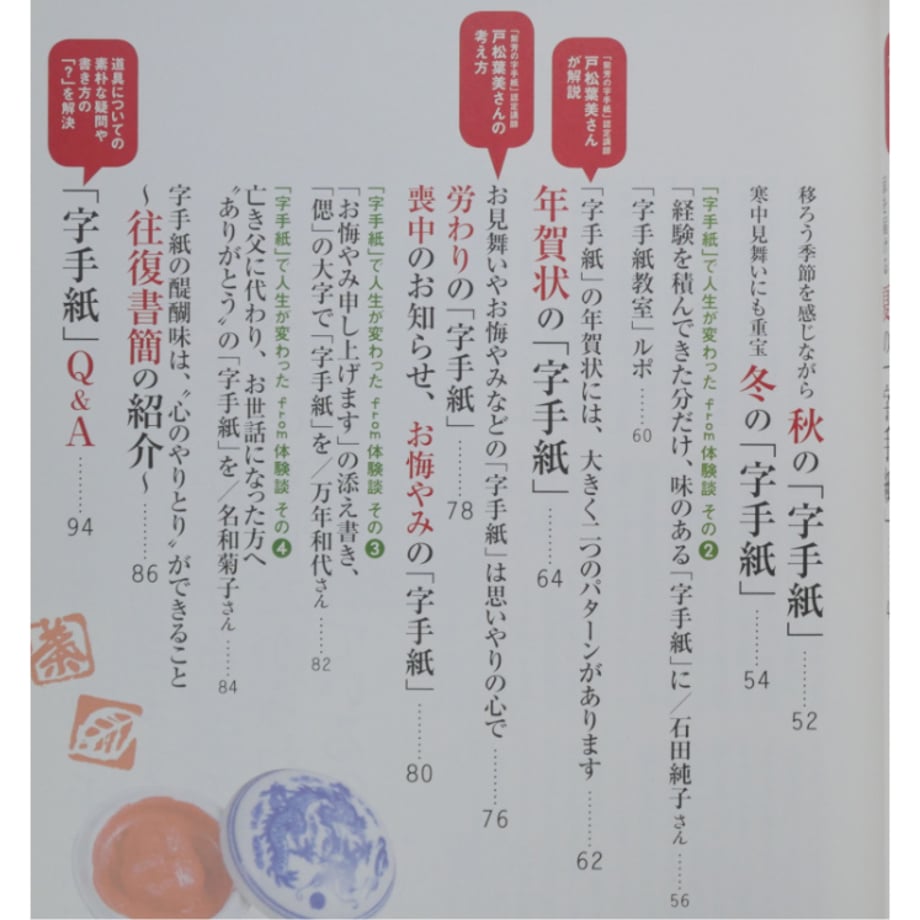 移ろう季節を感じながら
秋の「字手紙」………52
寒中見舞いにも重宝
冬の「字手紙」………54
「字手紙」で人生が変わった from 体験談 その❷
「経験を積んできた分だけ、味のある「字手紙」に／石田純子さん……56
「字手紙教室」ルポ……60
認定講師
戸松葉美さん
が解説
「字手紙」の年賀状には、大きく二つのパターンがあります………62
年賀状の「字手紙」………64
認定講師
戸松葉美さんの
考え方
お見舞いやお悔やみなどの「字手紙」は思いやりの心で………76
労わりの「字手紙」………78
喪中のお知らせ、お悔やみの「字手紙」………80
「字手紙」で人生が変わった from 体験談 その❸
「お悔やみ申し上げます」の添え書き、
「偲」の大字で「字手紙」を／万年和代さん……82
「字手紙」で人生が変わった from 体験談 その❹
亡き父に代わり、お世話になった方へ
〝ありがとう〟の「字手紙」を／名和菊子さん……84
字手紙の醍醐味は、〝心のやりとり〟ができること
～往復書簡の紹介～………86
道具についての
素朴な疑問や
書き方の
「？」を解決
「字手紙」Q&A………94